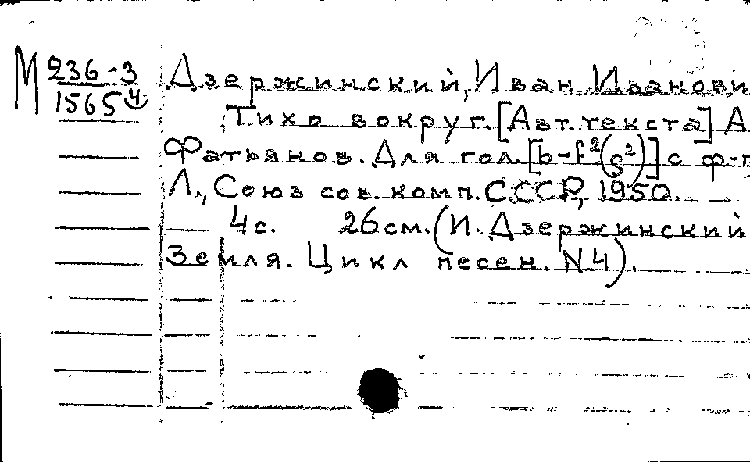 М 236-3
1565 ч
Дзержинский, Иван Иванови
Тихо вокруг. [Авт. текста] А
Фатьянов. Для гол. [b-f²(g²)] с ф-п
Л., Союз сов. комп. СССР, 1950.
4 с. 26 см. (И. Дзержинский
Земля. Цикл песен. N 4).